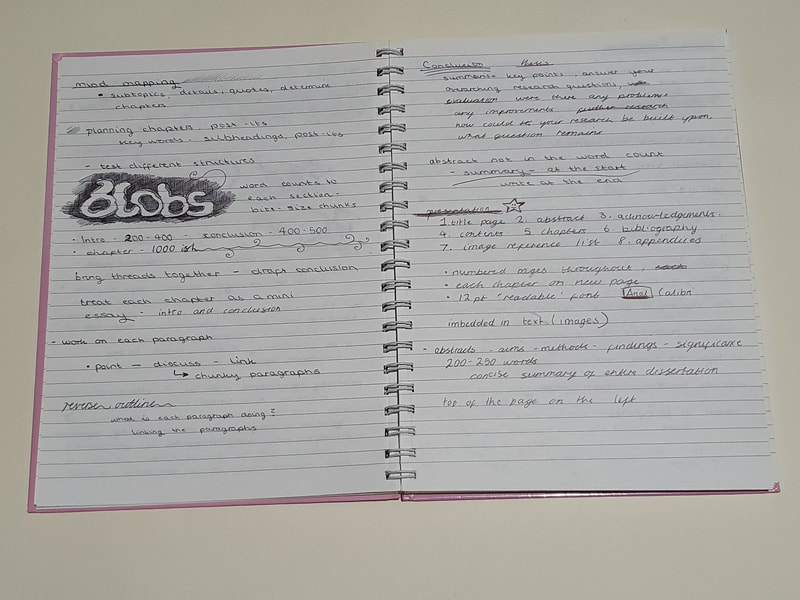 mind mapping
• subtopics, details, quotes, determine
chapters.
planning chapters, post-its
key words - subheadings, post-its
- test different structures
Blobs
word counts to
each section -
bite-size chunks
• Intro - 200-400 - conclusion - 400-500
• chapter - 1000 ish
bring threads together - draft conclusion
treat each chapter as a mini
essay - intro and conclusion
- work on each paragraph
• point - discuss - link
↳ chunky paragraphs
reverse outline
what is each paragraph doing?
linking the paragraphs
Conclusion thesis
key points, answer your
overarching research questions,
evaluation were there any problems
any improvements further research
how could your research be built upon,
what question remains
abstract not in the word count
- summary - at the start
write at the end
presentation
1. title page 2. abstract 3. acknowledgements.
4. contents 5 chapters 6 bibliography
7. image reference list 8. appendices
• numbered pages throughout,
• each chapter on new page
• 12pt "readable" font Arial Calibri
imbedded in text (images)
- abstracts - aims - methods - findings - significance
200-250 words
concise summary of entire dissertation
top of the page on the left